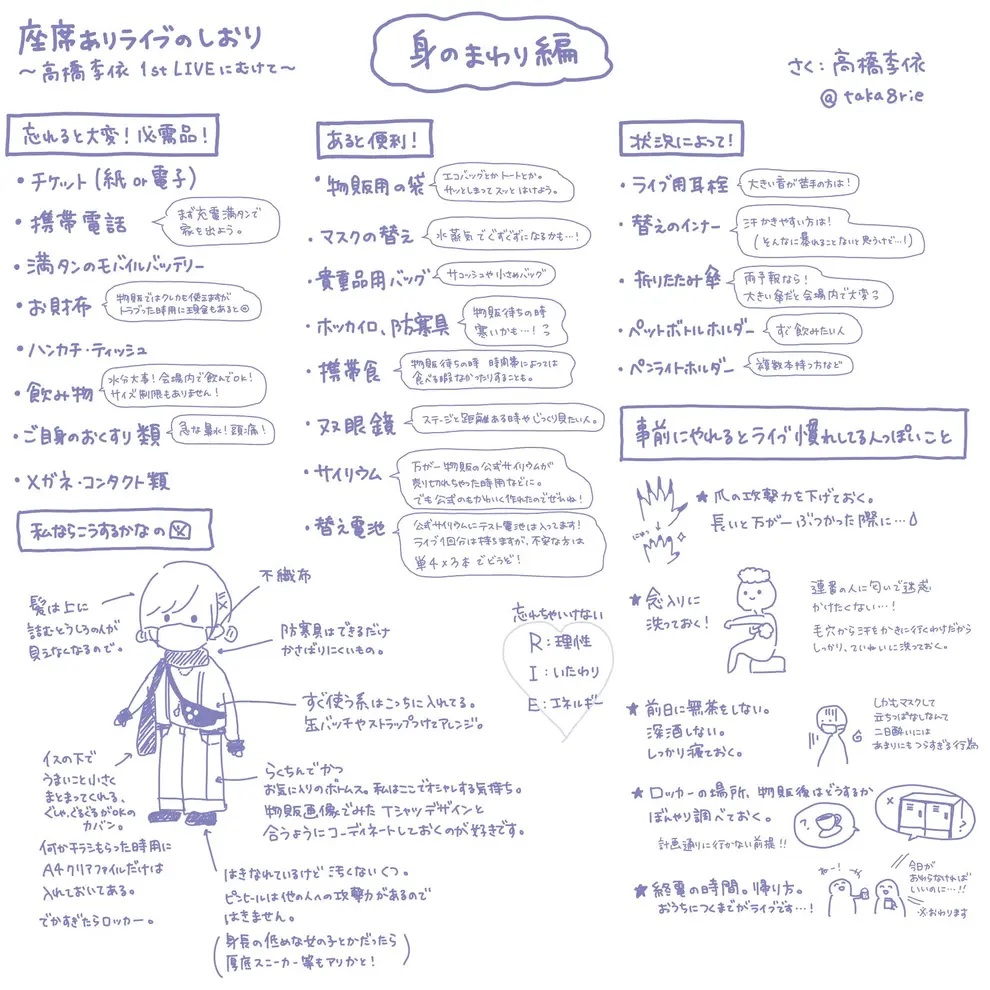 座席ありライブのしおり
〜高橋李依 1st LIVEにむけて〜
身のまわり編
さく：高橋李依
@taka8rie
忘れると大変！必需品！
・チケット（紙or電子）
・携帯電話
まず充電満タンで
家を出よう。
・満タンのモバイルバッテリー
・お財布
物販ではクレカも使えますが
トラブった時用に現金もあると◎
・ハンカチ・ティッシュ
・飲み物
水分大事！会場内で飲んでOK！
サイズ制限もありません！
・ご自身のおくすり類
急な鼻水！頭痛！
・メガネ・コンタクト類
あると便利！
・物販用の袋
エコバッグとかトートとか。
サッとしまってスッとはけよう。
・マスクの替え
水蒸気でぐずぐずになるかも…！
・貴重品用バッグ
サコッシュや小さめバッグ
・ホッカイロ、防寒具
物販待ちの時
寒いかも…！
・携帯食
物販待ちの時 時間帯によっては
食べる暇なかったりすることも。
・双眼鏡
ステージと距離ある時やじっくり見たい人。
・サイリウム
万が一物販の公式サイリウムが
売り切れちゃった時用などに。
でも公式のもかわいく作れたのでぜひね！
・替え電池
公式サイリウムにテスト電池は入ってます！
ライブ1回分は持ちますが、不安な方は
単4×3本でどうぞ！
状況によって！
・ライブ用耳栓
大きい音が苦手の方は！
・替えのインナー
汗かきやすい方は！
（そんなに暴れることないと思うけど…！）
・折りたたみ傘
雨予報なら！
大きい傘だと会場内で大変
・ペットボトルホルダー
すぐ飲みたい人
・ペンライトホルダー
複数本持つ方など
事前にやれるとライブ慣れしてる人っぽいこと
★爪の攻撃力を下げておく。
長いと万が一ぶつかった際に…
★念入りに
洗っておく！
連番の人に匂いで迷惑
かけたくない…！
毛穴から汗をかきに行くわけだから
しっかり、ていねいに洗っておく。
★前日に無茶をしない。
深酒しない。
しっかり寝ておく。
しかもマスクして
立ちっぱなしなんて
二日酔いには
あまりにもつらすぎる行為
★ロッカーの場所、物販後はどうするか
ぼんやり調べておく。
計画通りに行かない前提!!
★終電の時間。帰り方。
おうちにつくまでがライブです…！
今日が
おわらなければ
いいのに…!!
※おわります
私ならこうするかなの図
髪は上に
詰むとうしろの人が
見えなくなるので。
不織布
防寒具はできるだけ
かさばりにくいもの。
すぐ使う系はこっちに入れてる。
缶バッチやストラップつけてアレンジ。
イスの下で
うまいこと小さく
まとまってくれる、
ぐしゃ、ぐるぐるがOKの
カバン。
何かチラシもらった時用に
A4クリアファイルだけは
入れておいてある。
でかすぎたらロッカー。
らくちんでかつ
お気に入りのボトムス。私はここでオシャレする気持ち。
物販画像でみたTシャツデザインと
合うようにコーディネートしておくのが好きです。
はきなれているけど汚くないくつ。
ピンヒールは他の人への攻撃力があるので
はきません。
（身長の低めな女の子とかだったら
厚底スニーカー等もアリかと！）
忘れちゃいけない
R：理性
I：いたわり
E：エネルギー